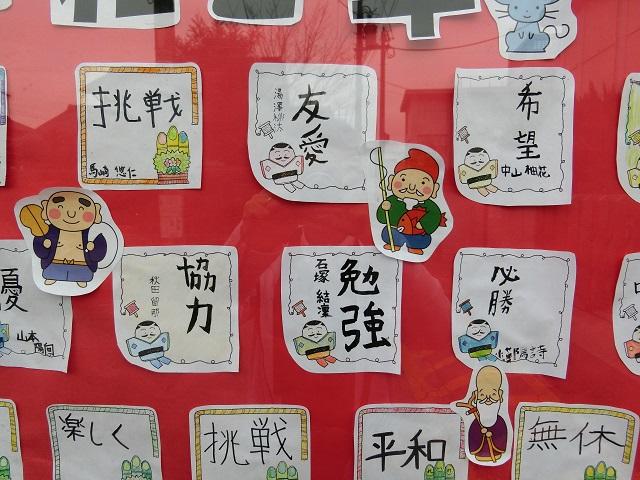 挑戦
馬崎 悠仁
友愛
希望
中山柚花
優
山本
協力
秋田留那
勉強
石塚 結凜
必勝
楽しく
挑戦
平和
無休